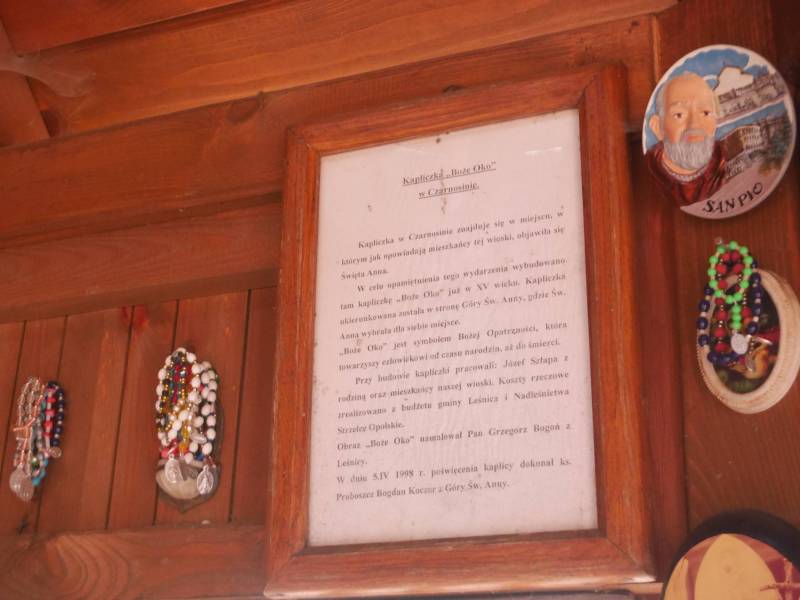 Kapliczka „Boże Oko”
w Czarnosinie.
Kapliczka w Czarnosinie znajduje się w miejscu, w
którym jak opowiadają mieszkańcy tej wioski, objawiła się
Święta Anna.
W celu upamiętnienia tego wydarzenia wybudowano
tam kapliczkę „Boże Oko” już w XV wieku. Kapliczka
ukierunkowana została w stronę Góry Św. Anny, gdzie Św.
Anna wybrała dla siebie miejsce.
„Boże Oko” jest symbolem Bożej Opatrzności, która
towarzyszy człowiekowi od czasu narodzin, aż do śmierci.
Przy budowie kapliczki pracowali: Józef Szłapa z
rodziną oraz mieszkańcy naszej wioski. Koszty rzeczowe
zrealizowano z budżetu gminy Leśnica i Nadleśnictwa
Strzelce Opolskie.
Obraz „Boże Oko” namalował Pan Grzegorz Bogoń z
Leśnicy.
W dniu 5.IV 1998 r. poświęcenia kaplicy dokonał ks.
Proboszcz Bogdan Koczor z Góry Św. Anny.
SAN PIO